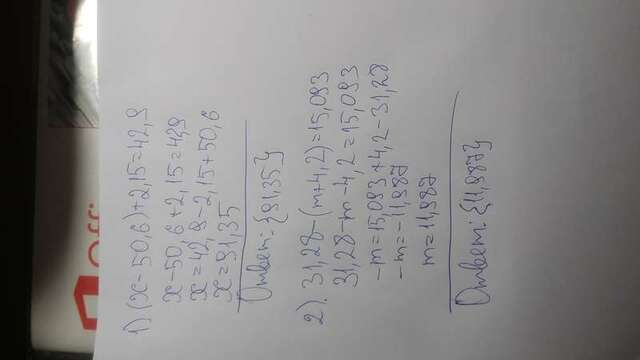 1) (x-50,6)+2,15=42,9
x-50,6+2,15=42,9
x=42,9-2,15+50,6
x=91,35
Ответ: {91,35}
2). 31,28-(m+4,2)=15,093
31,28-m-4,2=15,093
-m=15,093+4,2-31,28
-m=-11,987
m=11,987
Ответ: {11,987}
Offi